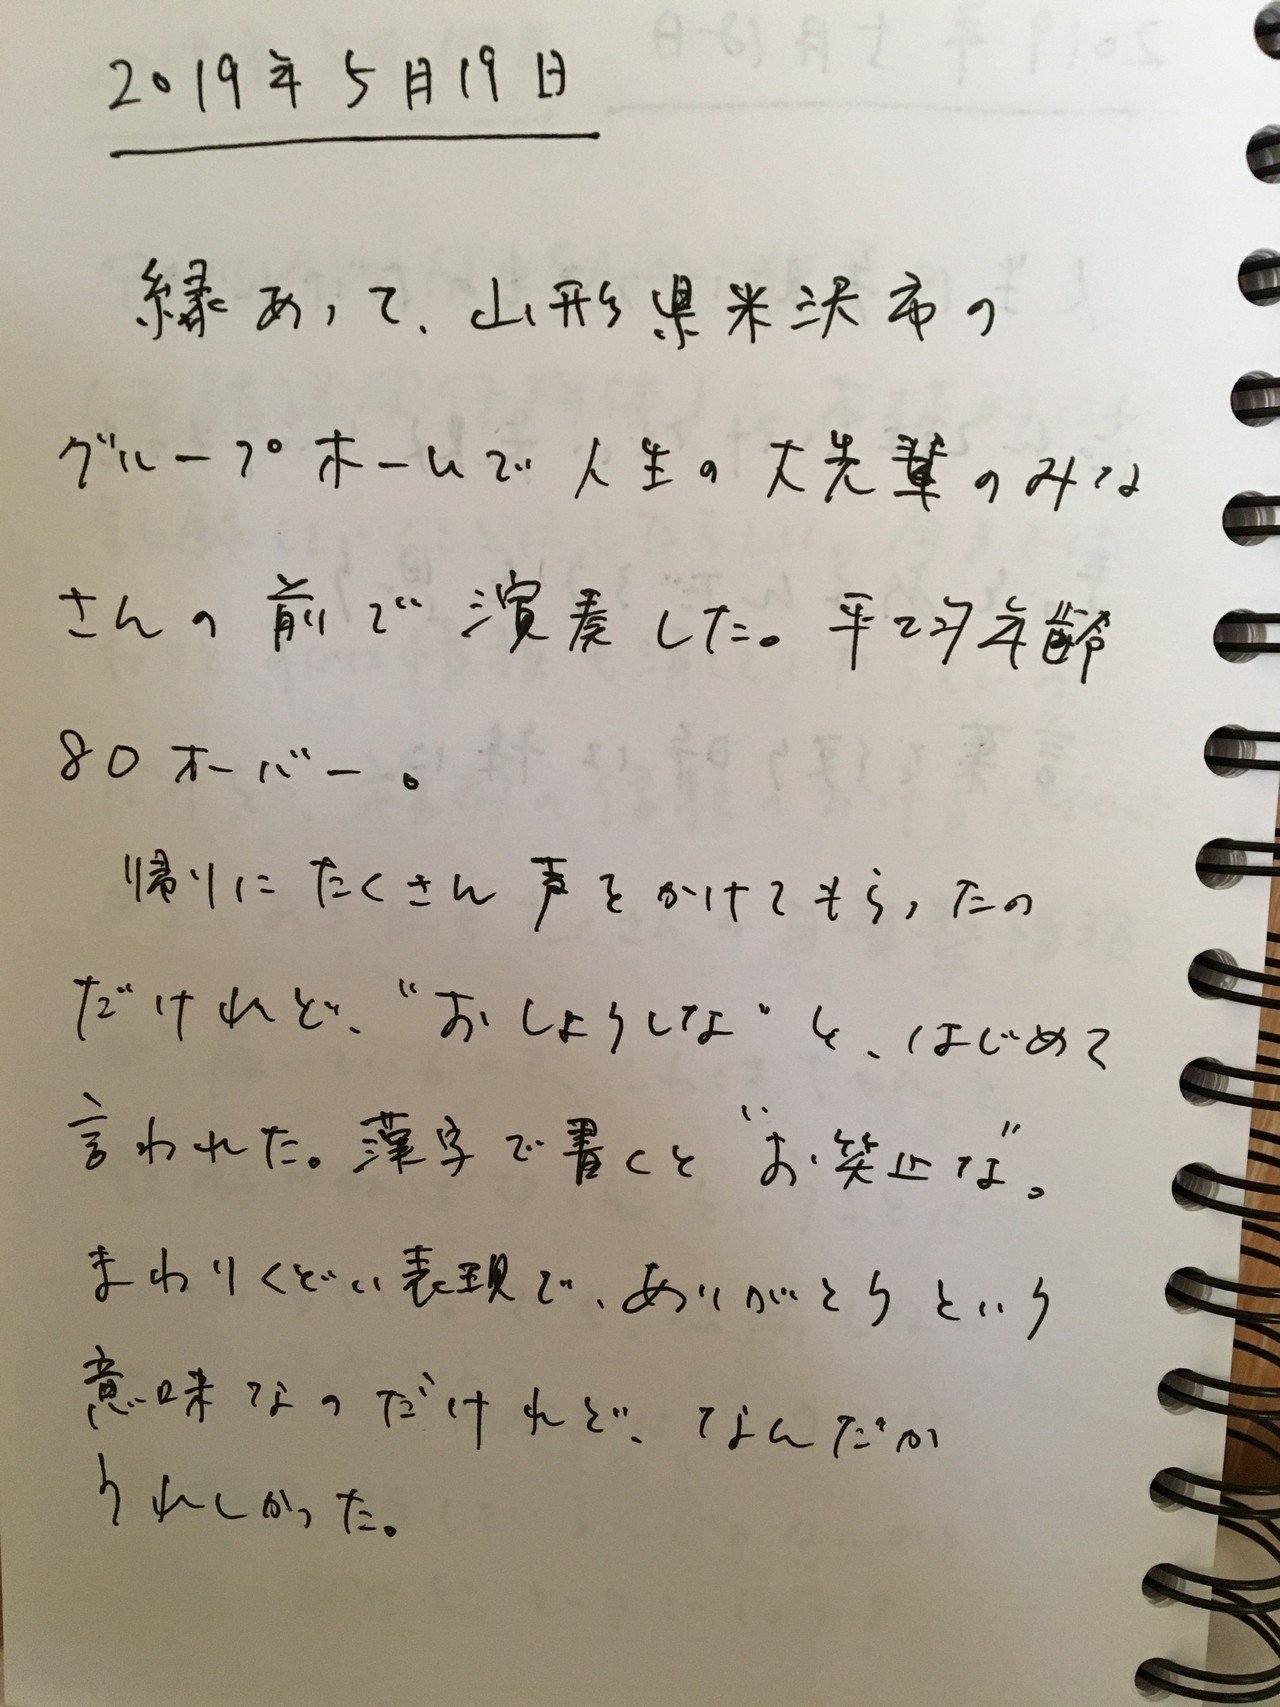 2019年5月19日
縁あって、山形県米沢市の
グループホームで人生の大先輩のみな
さんの前で演奏した。平均年齢
80オーバー。
帰りにたくさん声をかけてもらったの
だけれど、“おしょうしな”と、はじめて
言われた。漢字で書くと“お笑止な”。
まわりくどい表現で、ありがとうという
意味なのだけれど、なんだか
うれしかった。